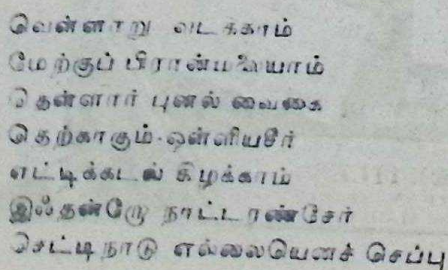 வெள்ளாறு வடக்காம்
மேற்குப் பிரான்மலையாம்
தெள்ளார் புனல் வைகை
தெற்காகும்-ஒள்ளியசீர்
எட்டிக்கடல் கிழக்காம்
இஃதன்றோ நாட்டரண்சேர்
செட்டிநாடு எல்லையெனச் செப்பு